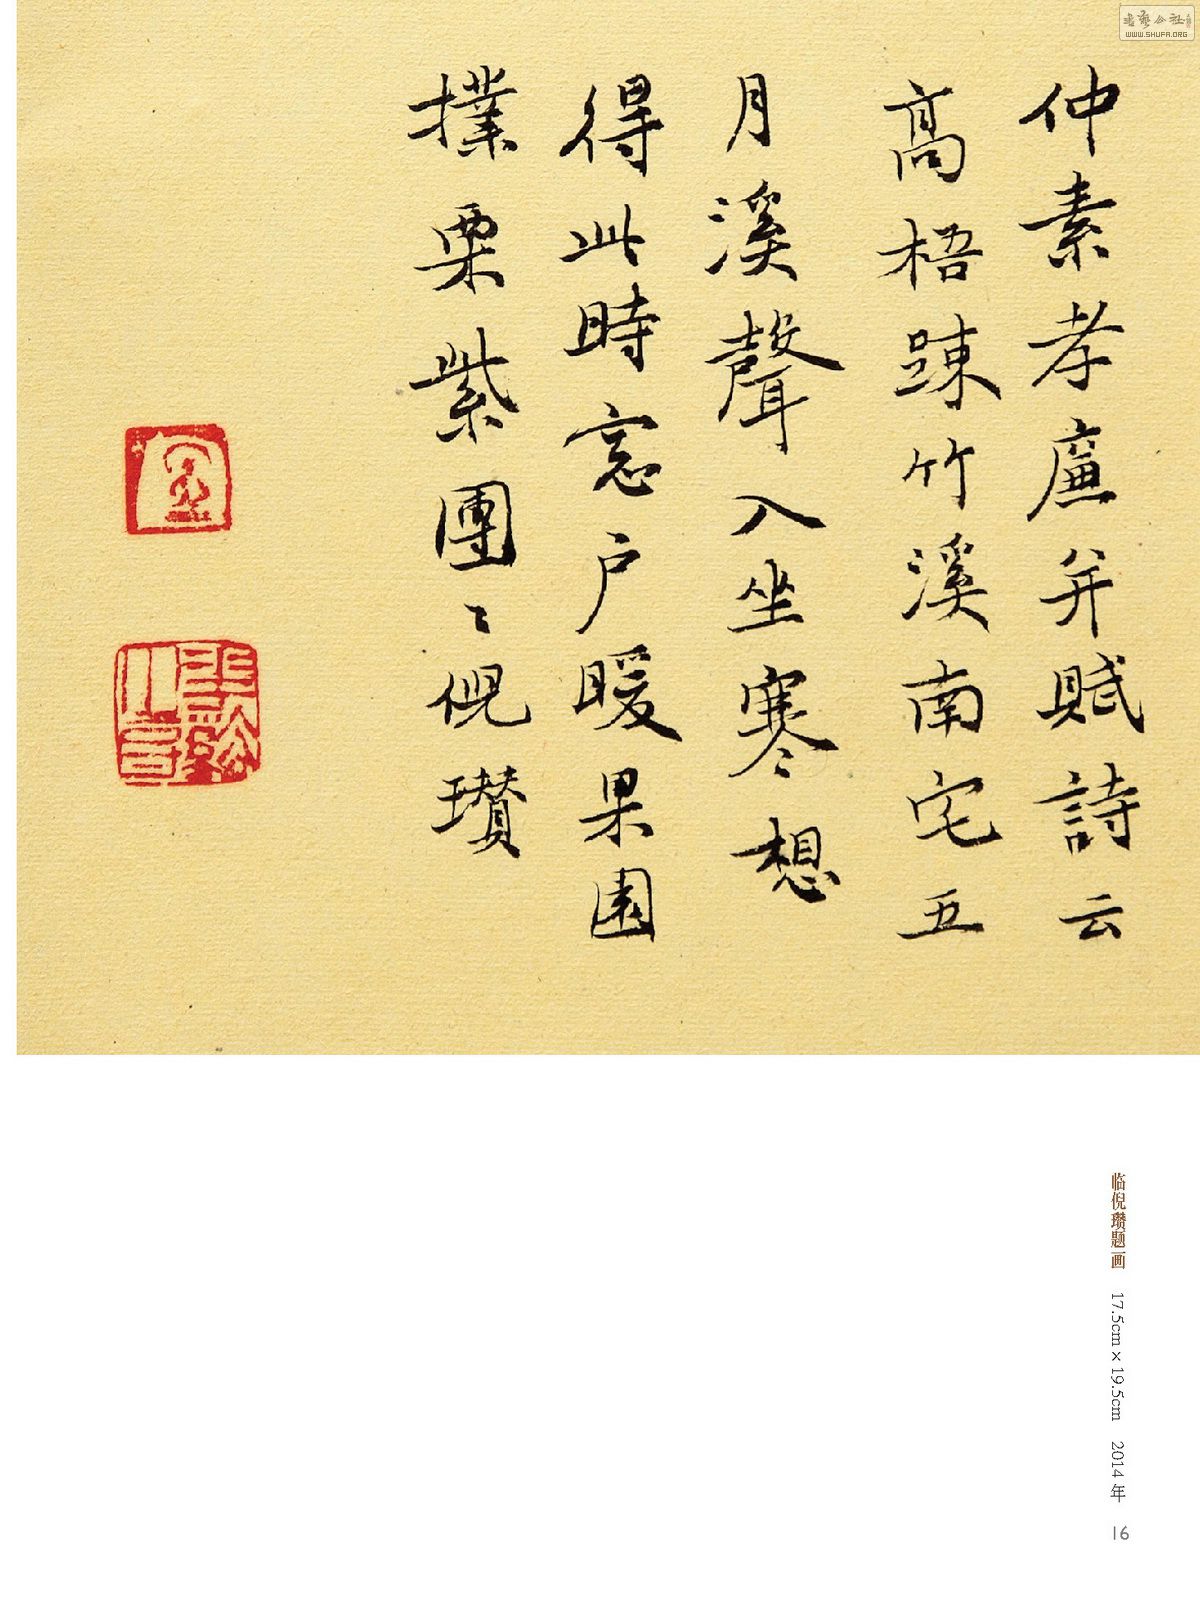 仲素孝廉并賦詩云
高梧踈竹溪南宅五
月溪聲入坐寒想
得此時窓户暖果園
撲栗紫團〻倪瓚
临倪瓒题画 17.5cm×19.5cm 2014年
16
书艺公社
WWW.SHUFA.ORG